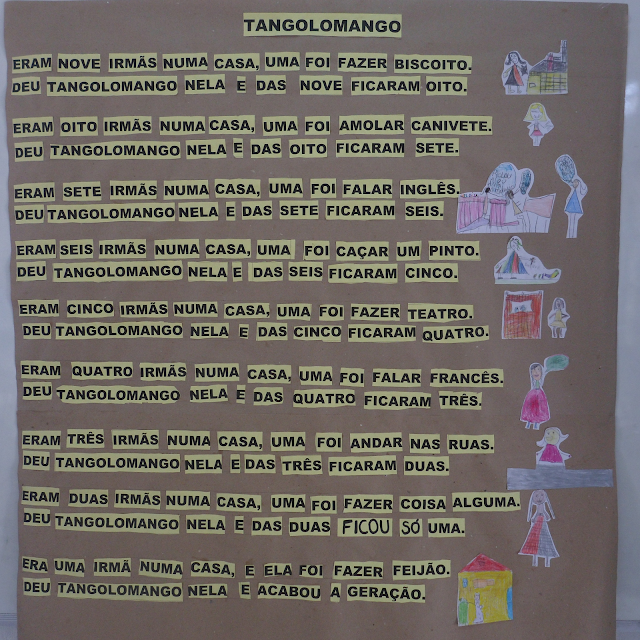 TANGOLOMANGO
ERAM NOVE IRMÃS NUMA CASA, UMA FOI FAZER BISCOITO.
DEU TANGOLOMANGO NELA E DAS NOVE FICARAM OITO.
ERAM OITO IRMÃS NUMA CASA, UMA FOI AMOLAR CANIVETE.
DEU TANGOLOMANGO NELA E DAS OITO FICARAM SETE.
ERAM SETE IRMÃS NUMA CASA, UMA FOI FALAR INGLÊS.
DEU TANGOLOMANGO NELA E DAS SETE FICARAM SEIS.
ERAM SEIS IRMÃS NUMA CASA, UMA FOI CAÇAR UM PINTO.
DEU TANGOLOMANGO NELA E DAS SEIS FICARAM CINCO.
ERAM CINCO IRMÃS NUMA CASA, UMA FOI FAZER TEATRO.
DEU TANGOLOMANGO NELA E DAS CINCO FICARAM QUATRO.
ERAM QUATRO IRMÃS NUMA CASA, UMA FOI FALAR FRANCÊS.
DEU TANGOLOMANGO NELA E DAS QUATRO FICARAM TRÊS.
ERAM TRÊS IRMÃS NUMA CASA, UMA FOI ANDAR NAS RUAS.
DEU TANGOLOMANGO NELA E DAS TRÊS FICARAM DUAS.
ERAM DUAS IRMÃS NUMA CASA, UMA FOI FAZER COISA ALGUMA.
DEU TANGOLOMANGO NELA E DAS DUAS FICOU SÓ UMA.
ERA UMA IRMÃ NUMA CASA, E ELA FOI FAZER FEIJÃO.
DEU TANGOLOMANGO NELA E ACABOU A GERAÇÃO.